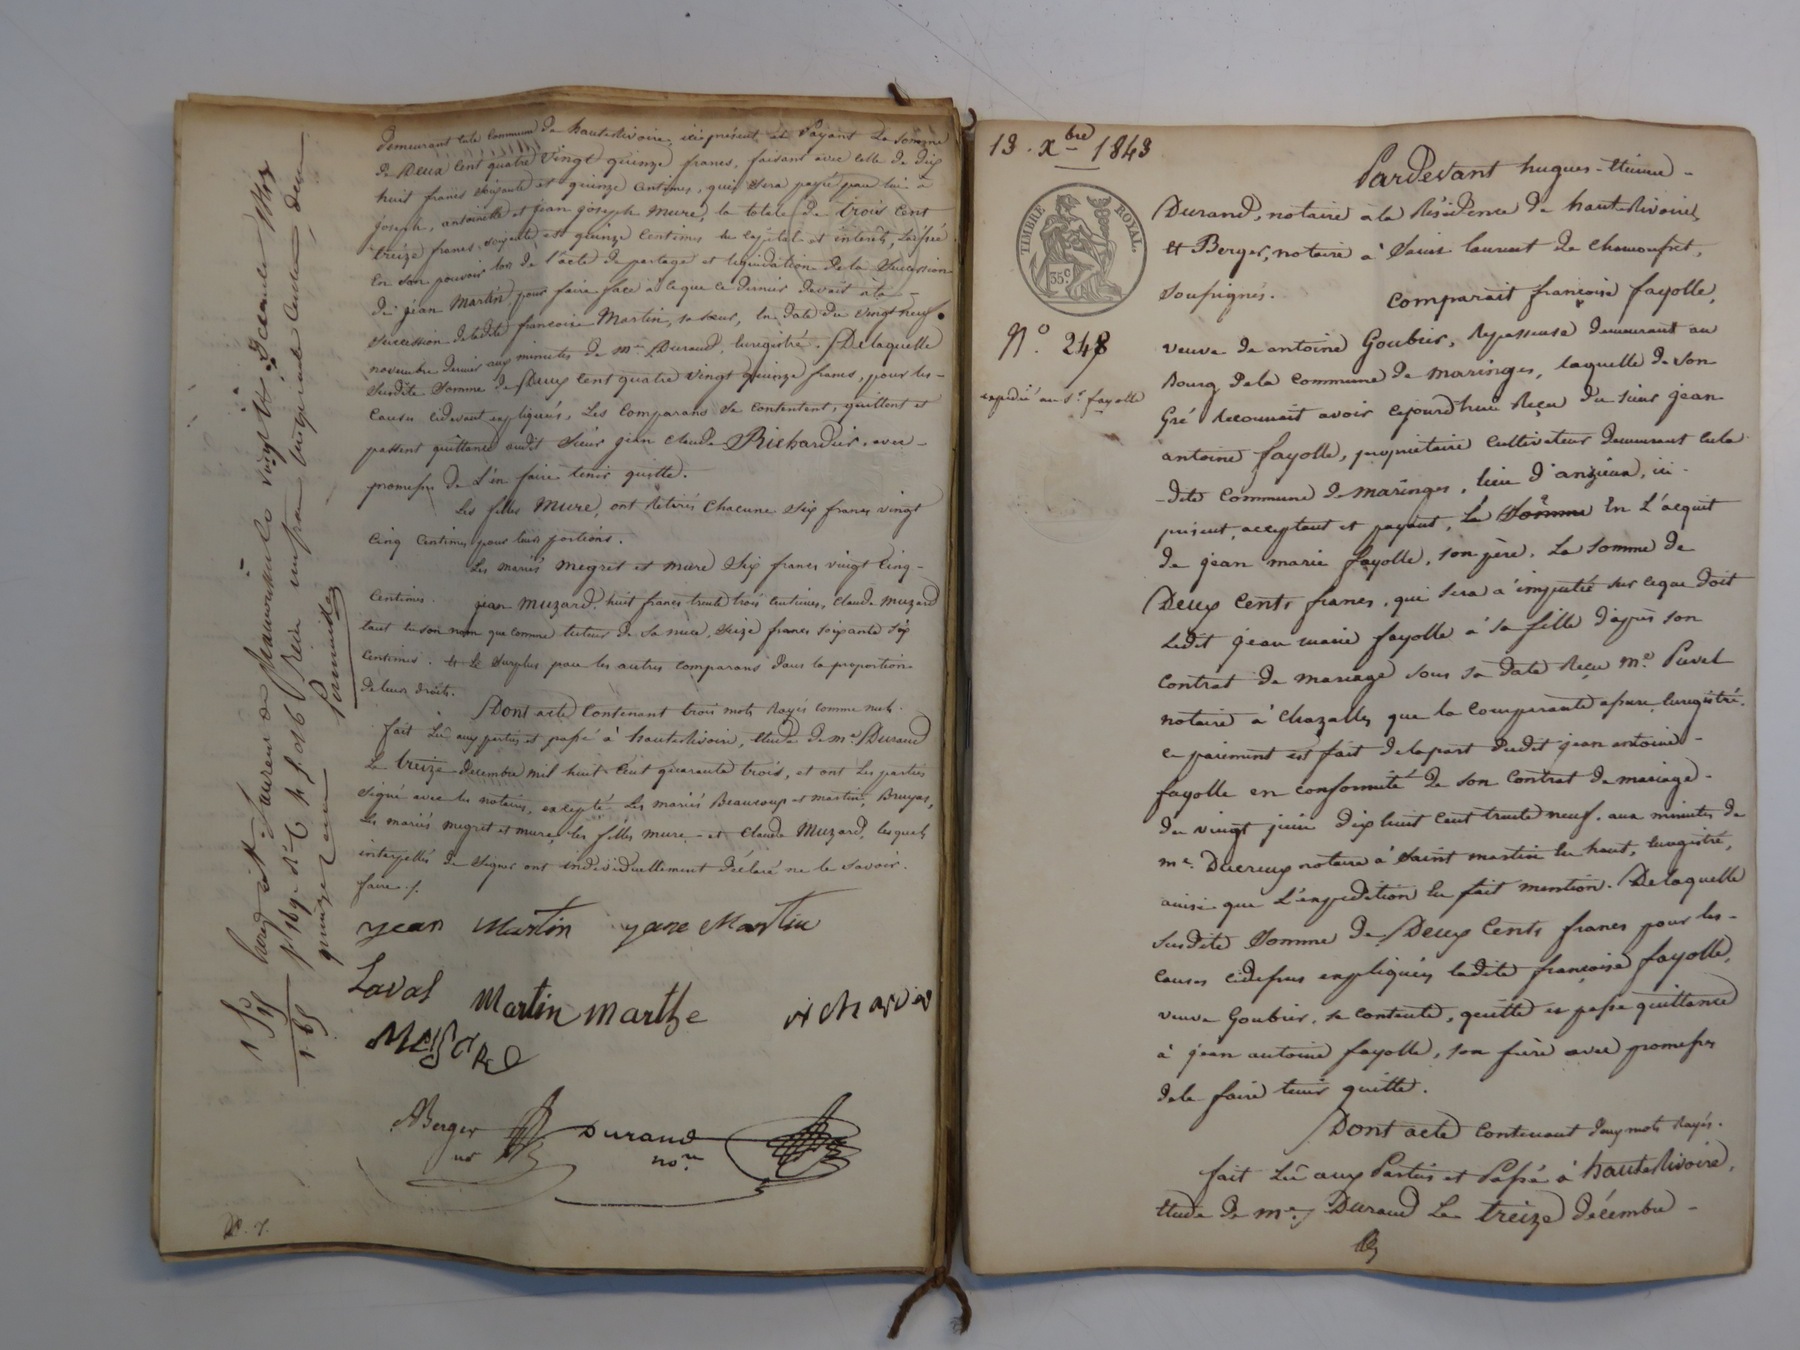 demeurant susdite commune de hauterivoire, ici présent et Payant La Somme
de Deux Cent quatre Vingt quinze francs, faisant avec celle de dix
huit francs soixante et quinze centimes, qui sera payée par lui à
joseph, antoinette et jean joseph mure, la totale de trois cent
treize francs soixante et quinze Centimes de capital et interets, Laissée
En Son pouvoir lors de l'acte de partage et liquidation de la Succession
de jean Martin pour faire face à ce que ce dernier devait à la -
succession de ladite françoise Martin, sa sœur, En date du vingt neuf
novembre dernier aux minutes de me Durand, Enregistré. De laquelle
susdite Somme de Deux Cent quatre vingt quinze francs, pour les -
Causes cidevant expliquées, Les Comparans se Contentent, quittent et
passent quittance audit Sieur jean claude Richardier, avec -
promesse de L'en faire tenir quitte.
Les filles Mure, ont Retirés Chacune Six francs vingt
Cinq Centimes pour leurs portions.
Les mariés megret et mure Six francs vingt Cinq -
Centimes. jean muzard, huit francs trente trois centimes, Claude muzard
tant en son nom que comme tuteur de Sa niece, Seize francs soixante Six
Centimes. Et le Surplus pour les autres comparans dans la proportion
de leurs droits.
Dont acte Contenant trois mots Rayés comme nuls.
fait Lû aux parties et passé à hauterivoire, Etude de me Durand
Le treize decembre mil huit cent quarante trois, et ont Les parties
signé avec les notaires, excepté Les mariés Beaucoup et martin, Bruyas,
Les mariés megret et mure, les filles mure et Claude Muzard, lesquels
interpellés de Signer ont individuellement déclaré ne le savoir
faire ./.
jean Martin jane Martin
Laval Martin marthe richardier
ABerger Durand
no re
13. Xbre 1843
TIMBRE ROYAL.
35c
No. 248
expédié au sr. fayolle
Pardevant hugues-Etienne -
Durand, notaire à la Résidence de hauterivoire,
Et Berger, notaire à Saint laurent de chamousset,
Soussignés. Comparait françoise fayolle,
veuve de antoine Goubier, Repasseuse demeurant au
Bourg de la Commune de maringes, laquelle de son
Gré Reconnait avoir cejourd'hui Reçu du sieur jean
antoine fayolle, propriétaire Cultivateur demeurant En la
-dite Commune de maringes, lieu d'anzieux, ici -
présent, acceptant et payant, La Somme En L'acquit
de jean marie fayolle, son père, La Somme de
Deux Cents francs, qui Sera à imputée sur ceque doit
Ledit jean marie fayolle à sa fille d'après son
Contrat de mariage Sous Sa date Reçu me. Puvel
notaire à Chazelles, que la Comparante assure Enregistré.
Ce paiement est fait de la part dudit jean antoine -
fayolle en conformité de son Contrat de mariage -
du vingt juin dix huit cent trente neuf, aux minutes de
me. Ducreux notaire à Saint martin En haut, Enregistré,
ainsi que L'expedition En fait mention. De laquelle
susdite Somme de Deux Cents francs pour les -
Causes cidessus expliquées ladite françoise fayolle,
veuve Goubier, se contente, quitte et passe quittance
à jean antoine fayolle, son frère avec promesse
de le faire tenir quitte.
Dont acte Contenant deux mots Rayés.
fait Lû aux Parties et Passé à hauterivoire,
Etude de me. Durand Le treize décembre -